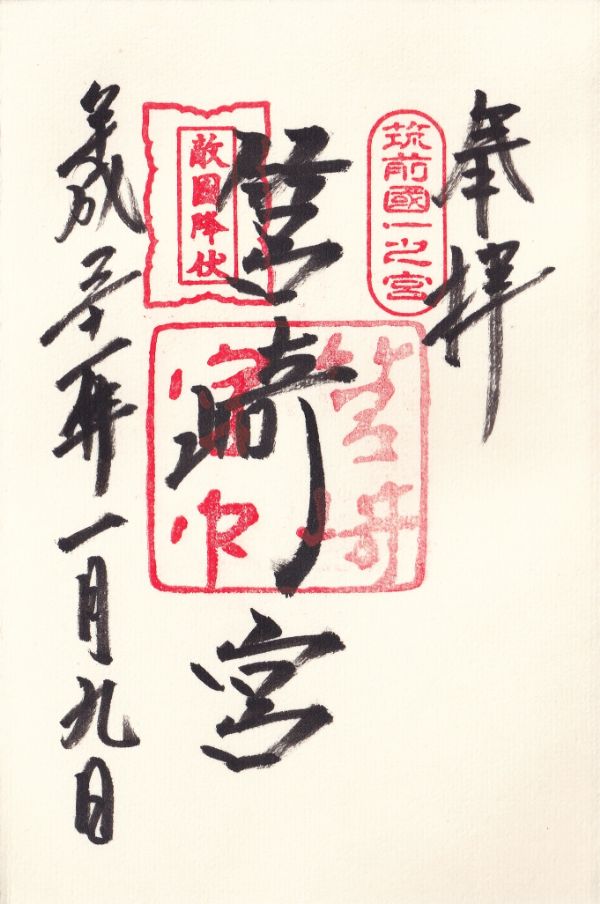 奉拝
筑前國一之宮
筥崎宮
敵國降伏
筥崎
宮印
平成三十一年一月九日